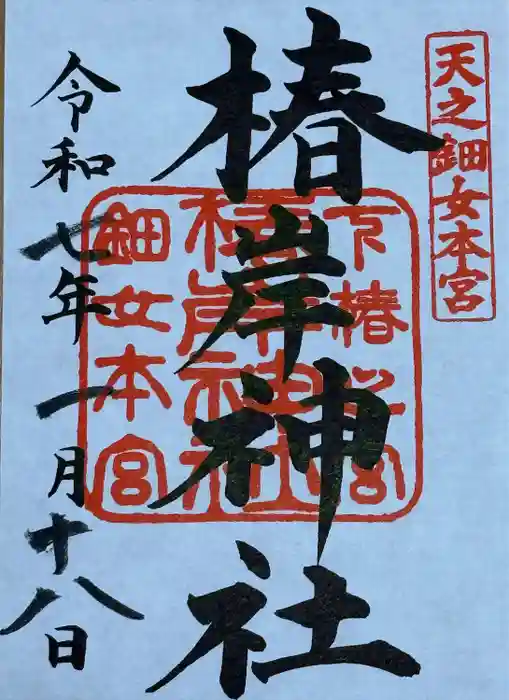 天之鈿女本宮
椿岸神社
下椿
椿岸神社
鈿女本宮
令和七年一月十八日